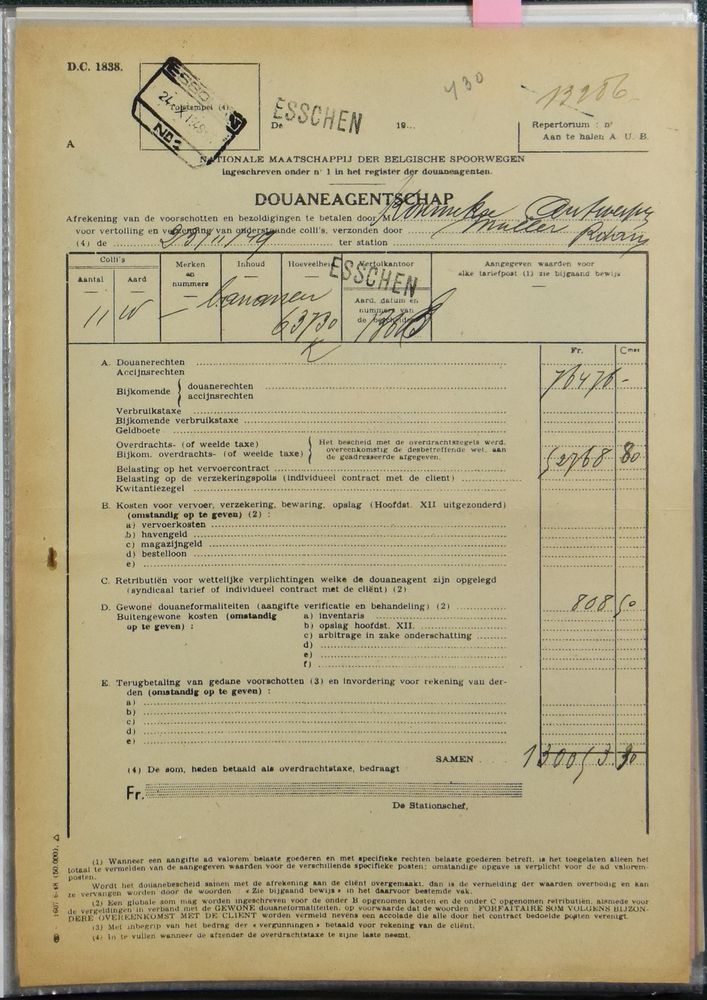 D.C. 1838.
430
13286
Tolstempel (4)
ESSCHEN
De 19...
Repertorium : n°
Aan te halen A. U. B.
A
NATIONALE MAATSCHAPPIJ DER BELGISCHE SPOORWEGEN
ingeschreven onder n° 1 in het register der douaneagenten.
DOUANEAGENTSCHAP
Afrekening van de voorschotten en bezoldigingen te betalen door M Antwerpen
voor vertolling en verzending van onderstaande colli's, verzonden door Muller
(4) de 23/11/49 ter station
Colli's
Aantal Aard
Merken en nummers
Inhoud
Hoeveelheid
Vertolkantoor
ESSCHEN
Aard, datum en nummers van de
Aangegeven waarden voor
elke tariefpost (1) zie bijgaand bewijs
11 W — bananen 63730
K
Fr. Cmes
A. Douanerechten
Accijnsrechten
76476 -
Bijkomende { douanerechten
accijnsrechten
Verbruikstaxe
Bijkomende verbruikstaxe
Geldboete
Overdrachts- (of weelde taxe)
Bijkom. overdrachts- (of weelde taxe)
Het bescheid met de overdrachtszegels werd,
overeenkomstig de desbetreffende wet, aan
de geadresseerde afgegeven.
52768 80
Belasting op het vervoercontract
Belasting op de verzekeringspolis (individueel contract met de client)
Kwitantiezegel
B. Kosten voor vervoer, verzekering, bewaring, opslag (Hoofdst. XII uitgezonderd)
(omstandig op te geven) (2) :
a) vervoerkosten
b) havengeld
c) magazijngeld
d) bestelloon
e)
C. Retributiën voor wettelijke verplichtingen welke de douaneagent zijn opgelegd
(syndicaal tarief of individueel contract met de cliënt) (2)
D. Gewone douaneformaliteiten (aangifte verificatie en behandeling) (2)
808 50
Buitengewone kosten (omstandig op te geven) :
a) inventaris
b) opslag hoofdst. XII
c) arbitrage in zake onderschatting
d)
e)
f)
E. Terugbetaling van gedane voorschotten (3) en invordering voor rekening van der-
den (omstandig op te geven) :
a)
b)
c)
d)
e)
SAMEN
130053 30
(4) De som, heden betaald als overdrachtstaxe, bedraagt
Fr.
De Stationschef,
(1) Wanneer een aangifte ad valorem belaste goederen en met specifieke rechten belaste goederen betreft, is het toegelaten alleen het
totaal te vermelden van de aangegeven waarden voor de verschillende specifieke posten; omstandige opgave is verplicht voor de ad valorem-
posten.
Wordt het douanebescheid samen met de afrekening aan de cliënt overgemaakt, dan is de vermelding der waarden overbodig en kan
ze vervangen worden door de woorden : « Zie bijgaand bewijs » in het daarvoor bestemde vak.
(2) Een globale som mag worden ingeschreven voor de onder B opgenomen kosten en de onder C opgenomen retributiën, alsmede voor
de vergeldingen in verband met de GEWONE douaneformaliteiten, op voorwaarde dat de woorden FORFAITAIRE SOM VOLGENS BIJZON-
DERE OVEREENKOMST MET DE CLIENT worden vermeld nevens een accolade die alle door het contract bedoelde posten verenigt.
(3) Met inbegrip van het bedrag der « vergunningen » betaald voor rekening van de cliënt.
(4) In te vullen wanneer de afzender de overdrachtstaxe te zijne laste neemt.